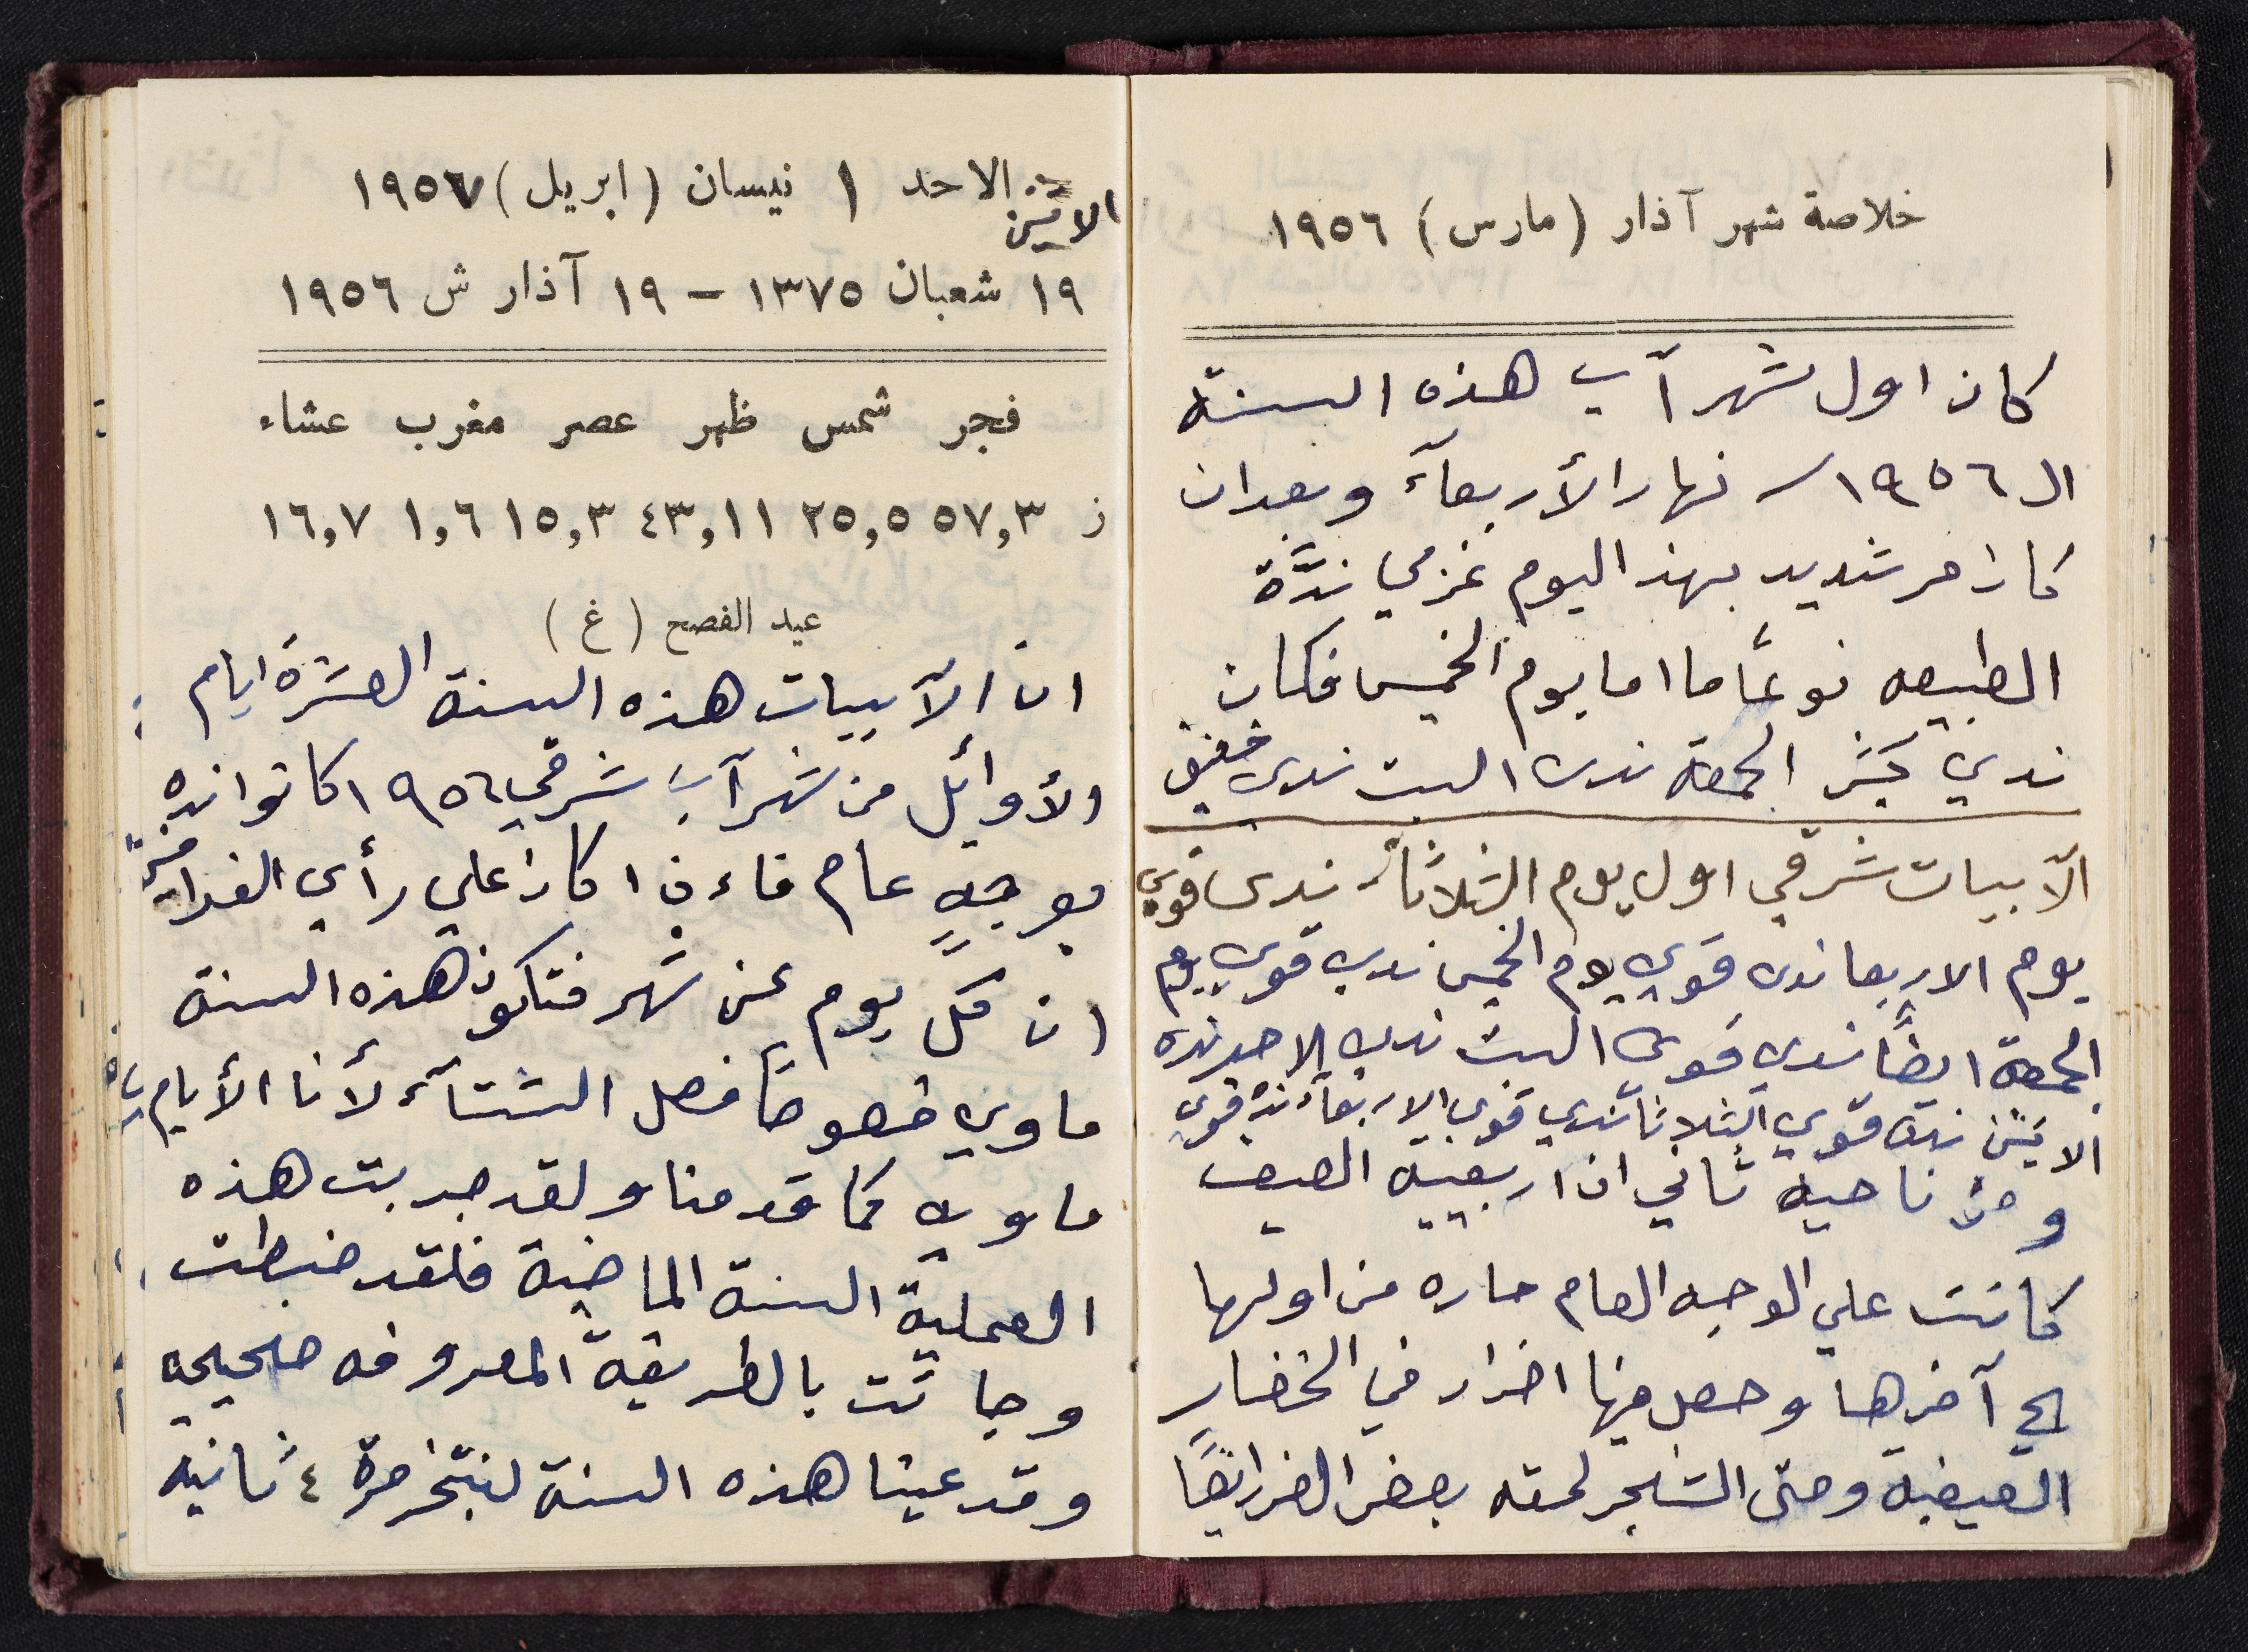 خلاصة شهر آذار (مارس) ١٩٥٦
كان اول شهر آب هذه السنة
الـ ١٩٥٦ نهار الأربعآء وبعدان
كان حر شديد بهذا اليوم غربي ندَّة
الطبيعه نوعًا ما اما يوم الخميس فكان
ندي كثير الجمعة ندى السبت ندى خفيف
الآبيات شرقي اول يوم الثلاثاء ندى قوي
يوم الاربعا ندى قوي يوم الخميس ندي قوي يوم
الجمعة ايضًا ندي قوي السبت ندي الاحد نده
الاثنين نده قوي الثلاثا ندي قوي الاربعآء نده قوي
ومن ناحية ثاني ان اربعينية الصيف
كانت علي الوجه العام حاره من اولها
الي آخرها وحصل منها اضرار في الخضار
الصيفية وحتى الشجر لحقه بعض الضرر ايضًا
الاحد ١ نيسان (ابريل) ١٩٥٧
الاثنين
١٩ شعبان ١٣٧٥ – ١٩ آذار ش ١٩٥٦
فجر شمس ظهر عصر مغرب عشاء
ز ٥٧,٣ ٢٥,٥ ٤٣,١١ ١٥,٣ ١,٦ ١٦,٧
عيد الفصح (غ)
ان الآبيات هذه السنة العشرة ايام
الأوائل من شهر آب شرقي ١٩٥٦ كانوا نده
بوجهٍ عام فاءذا كان علي رأي الفلاحين
ان كل يوم عن شهر فتكون هذه السنة
ماوي خصوصًا فصل الشتآء لأنا الأيام
ماويه كما قدمنا ولقد جربت هذه
العملية السنة الماضية فلقد ضبطت
وجائت بالطريقة المعروفه صحيحه
وقد عينا هذه السنة لنتخر مرة ٤ ثانيه